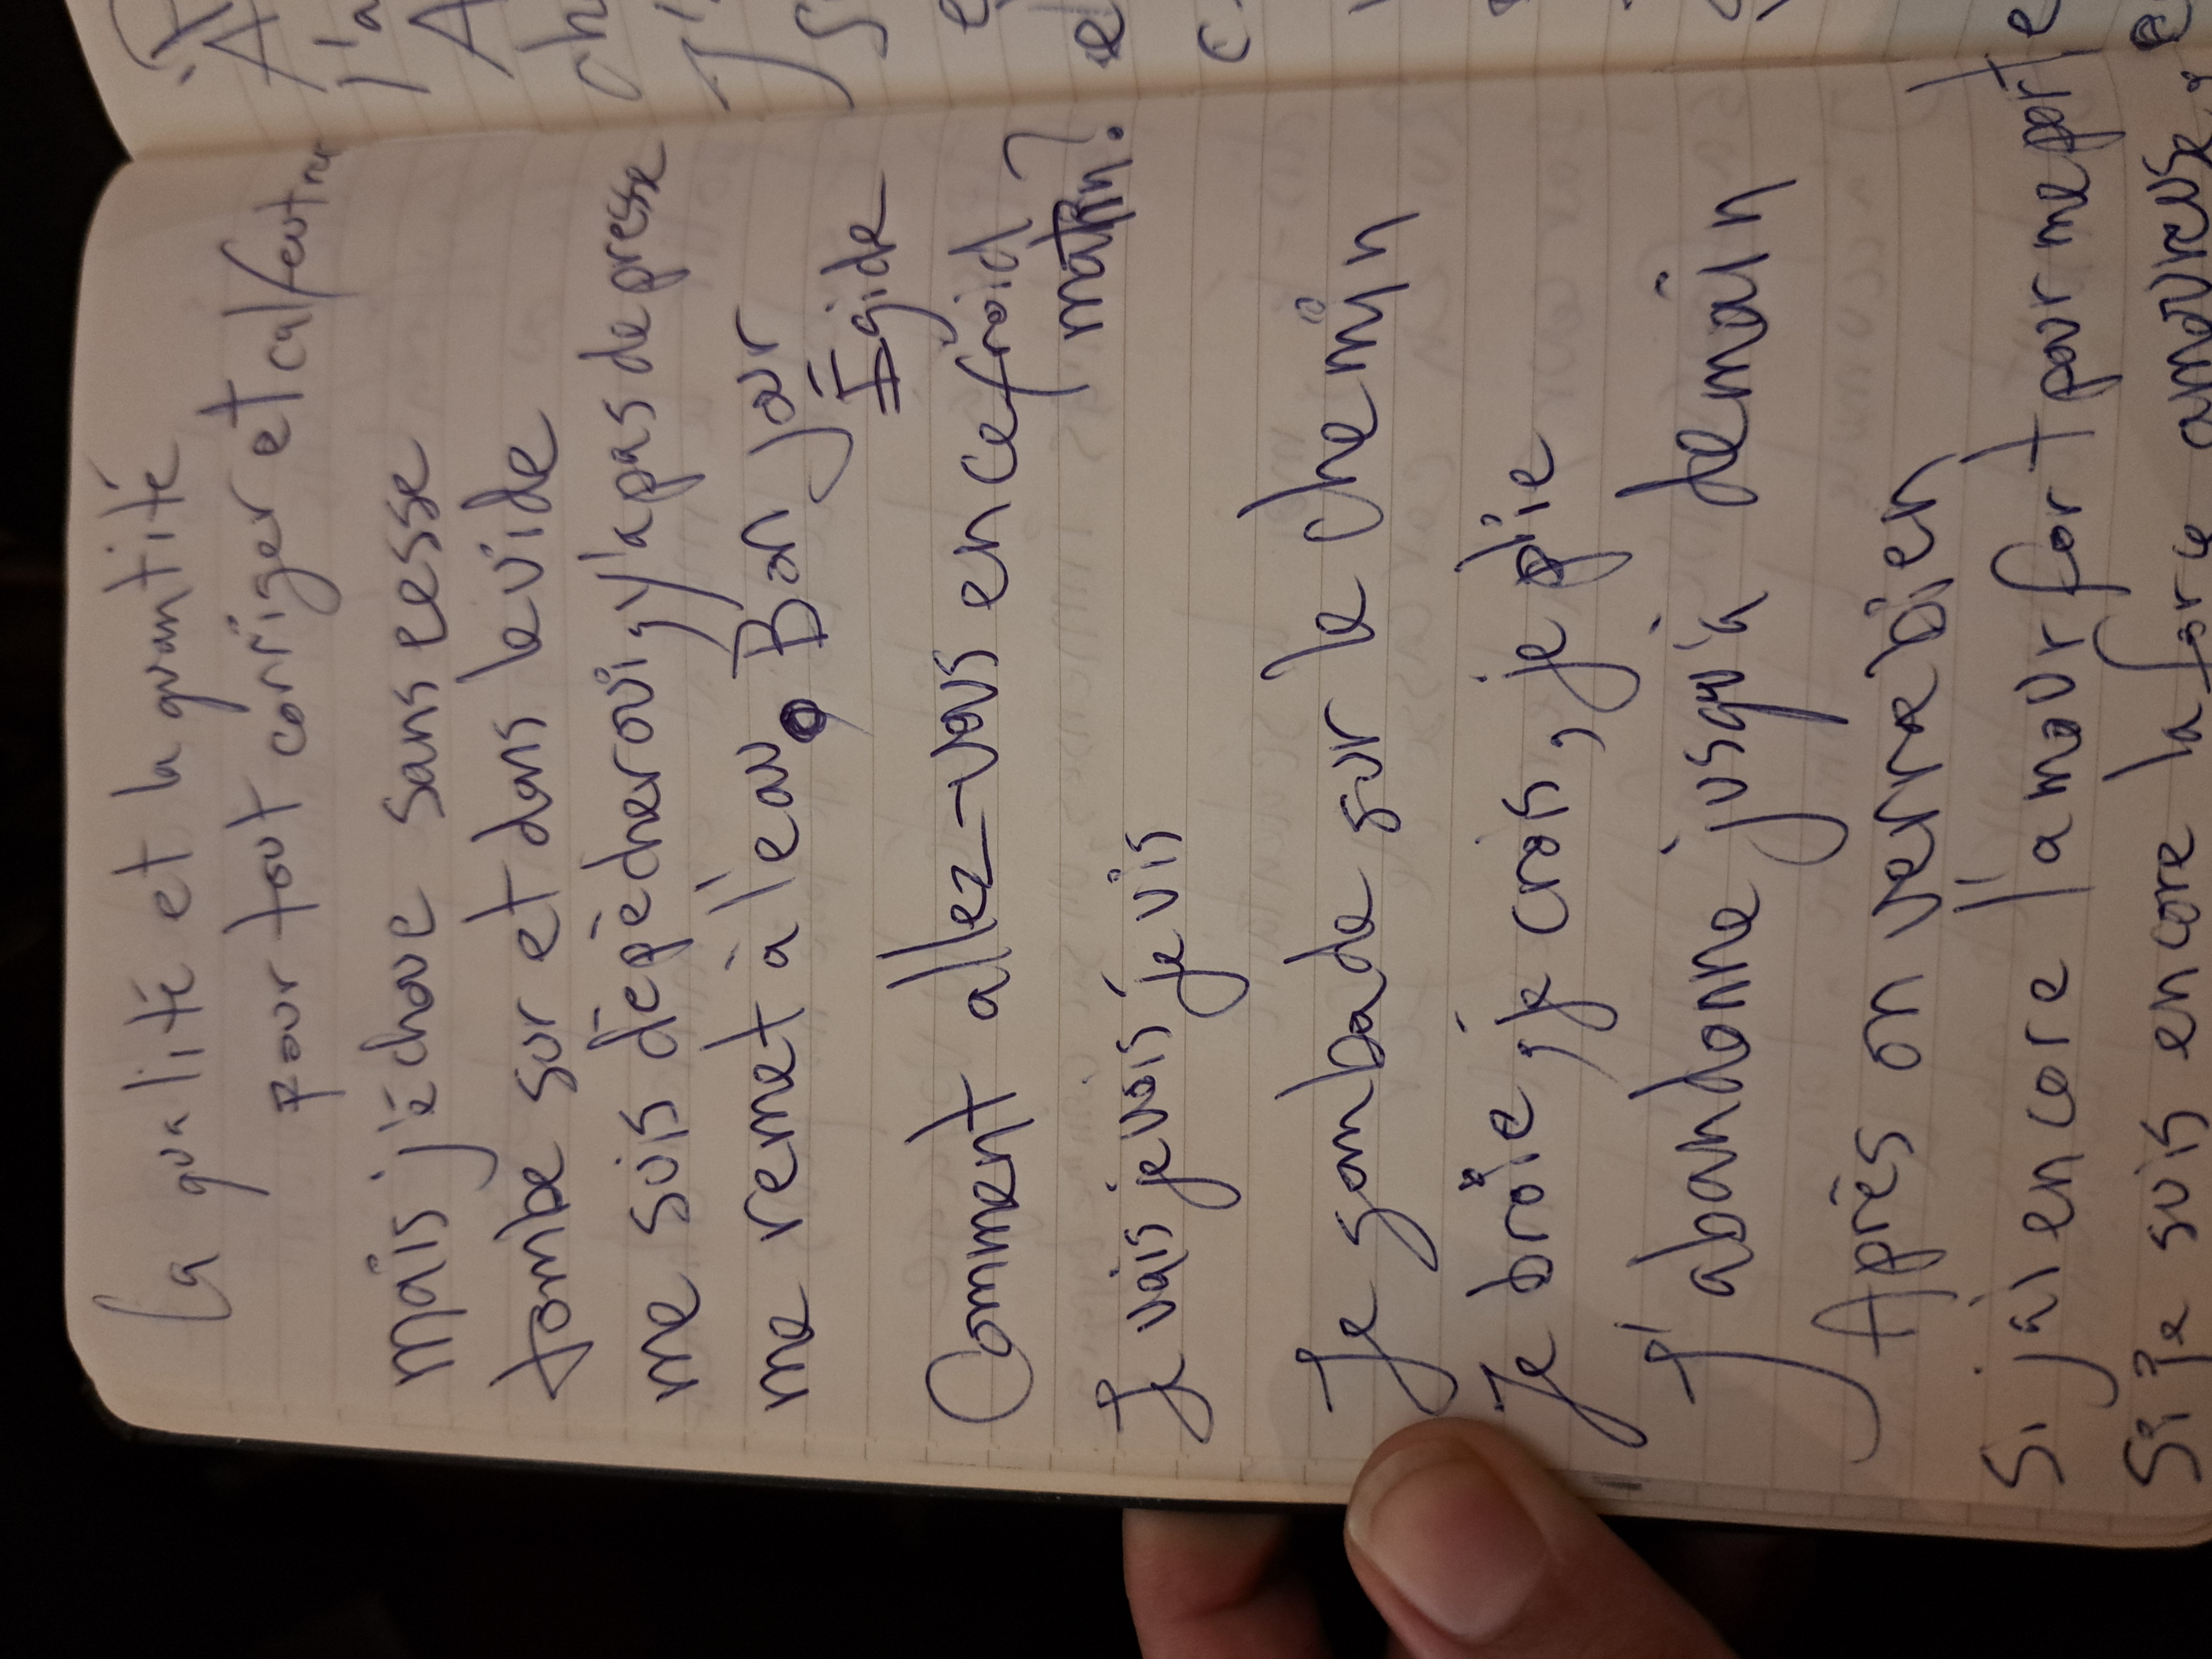 La qualité et la quantité
pour tout corriger et calfeutrer
mais j'échoue sans cesse
tombe sur et dans le vide
me suis dépêcher oui, y'a pas de presse
me remet à l'eau. Bon jour
Égide
Comment allez-vous en ce froid
matin?
Je vais je vois je vis
Je gambade sur le chemin
Je broie, je crois, je plie
J'abandonne jusqu'à demain
Après on verra bien
Si j'ai encore l'amour fort par mépri
Si je suis encore la force amoureuse,